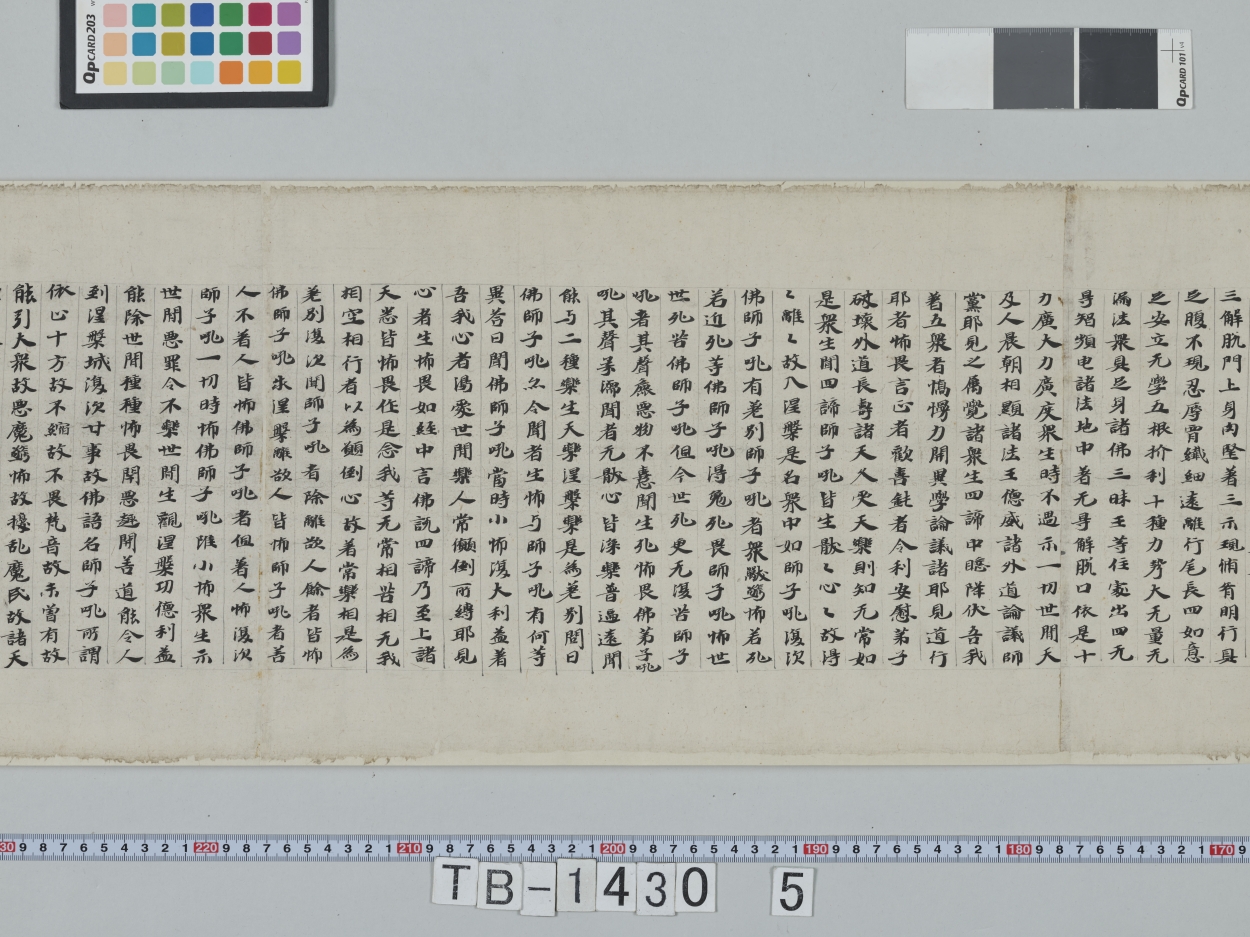 三解脱門上身肉堅著三示現脩脊明行具
足腹不現忍辱胃纖細遠離行尾長四如意
足安立无學五根利十種力勢大无量无
漏法衆具足身諸佛三昧王等住家出四无
㝵智頻申諸法地中著无㝵解脱口依是十
力廣大力廣度衆生時不過示一切世間天
及人晨朝相顯諸法王德威諸外道論議師
黨耶見之属覺諸衆生四諦中隱降伏吾我
著五衆者憍慢力開異學論議諸耶見道行
耶者怖畏言正者歡喜鈍者令利安慰弟子
破壞外道長壽諸天久受天樂則知无常如
是衆生聞四諦師子吼皆生猒〻心〻故得
〻離〻故入涅槃是名衆中如師子吼復次
佛師子吼有差別師子吼者衆獸驚怖若死
若近死等佛師子吼得免死畏師子吼怖世
世死皆佛師子吼但今世死更无復皆師子
吼者其聲麁惡物不憙聞生死怖畏佛弟子吼
吼其聲柔濡聞者无猒心皆深樂普遍遠聞
能与二種樂生天樂涅槃樂是為差別問曰
佛師子吼么令聞者生怖与師子吼有何等
異答曰聞佛師子吼當時小怖復大利益著
吾我心者渴愛世間樂人常顛倒所縛耶見
心者生怖畏如経中言佛說四諦乃至上諸
天悉皆怖畏作是念我等无常相皆相无我
相空相行者以為顛倒心故著常樂相是為
差別復次聞師子吼者除離欲人餘者皆怖
佛師子吼求涅槃離欲人皆怖師子吼者善
人不著人皆怖佛師子吼者但著人怖復次
師子吼一切時怖佛師子吼陏小怖衆生示
世間惡罪令不樂世間生觀涅槃功德利益
能除世間種種怖畏閇惡趣開善道能令人
到涅槃城復次廿事故佛語名師子吼所謂
依止十方故不縮故不畏梵音故未曾有故
能引大衆故惡魔驚怖故擾乱魔民故諸天
QPCARD 203
QPCARD 101 v4
TB-1430 5